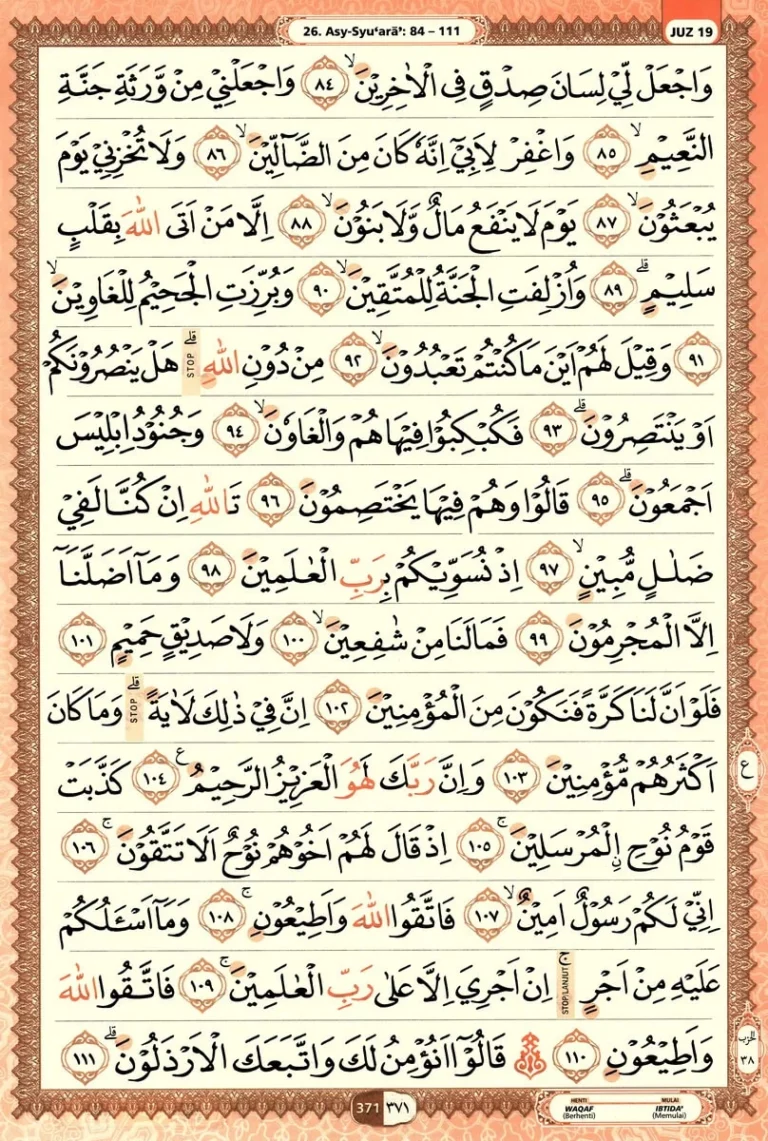 26. Asy-Syu‘arā’: 84 – 111
JUZ 19
وَاجْعَلْ لِّيْ لِسَانَ صِدْقٍ فِى الْاٰخِرِيْنَۙ ٨٤ وَاجْعَلْنِيْ مِنْ وَّرَثَةِ جَنَّةِ
النَّعِيْمِۙ ٨٥ وَاغْفِرْ لِاَبِيْٓ اِنَّهٗ كَانَ مِنَ الضَّاۤلِّيْنَۙ ٨٦ وَلَا تُخْزِنِيْ يَوْمَ
يُبْعَثُوْنَۙ ٨٧ يَوْمَ لَا يَنْفَعُ مَالٌ وَّلَا بَنُوْنَۙ ٨٨ اِلَّا مَنْ اَتَى اللّٰهَ بِقَلْبٍ
سَلِيْمٍۗ ٨٩ وَاُزْلِفَتِ الْجَنَّةُ لِلْمُتَّقِيْنَۙ ٩٠ وَبُرِّزَتِ الْجَحِيْمُ لِلْغَاوِيْنَۙ
٩١ وَقِيْلَ لَهُمْ اَيْنَ مَا كُنْتُمْ تَعْبُدُوْنَۙ ٩٢ مِنْ دُوْنِ اللّٰهِۗ STOP هَلْ يَنْصُرُوْنَكُمْ
اَوْ يَنْتَصِرُوْنَۗ ٩٣ فَكُبْكِبُوْا فِيْهَا هُمْ وَالْغَاوٗنَۙ ٩٤ وَجُنُوْدُ اِبْلِيْسَ
اَجْمَعُوْنَۗ ٩٥ قَالُوْا وَهُمْ فِيْهَا يَخْتَصِمُوْنَ ٩٦ تَاللّٰهِ اِنْ كُنَّا لَفِيْ
ضَلٰلٍ مُّبِيْنٍۙ ٩٧ اِذْ نُسَوِّيْكُمْ بِرَبِّ الْعٰلَمِيْنَ ٩٨ وَمَآ اَضَلَّنَآ
اِلَّا الْمُجْرِمُوْنَ ٩٩ فَمَا لَنَا مِنْ شٰفِعِيْنَۙ ١٠٠ وَلَا صَدِيْقٍ حَمِيْمٍ ١٠١
فَلَوْ اَنَّ لَنَا كَرَّةً فَنَكُوْنَ مِنَ الْمُؤْمِنِيْنَ ١٠٢ اِنَّ فِيْ ذٰلِكَ لَاٰيَةًۗ STOP وَمَا كَانَ
اَكْثَرُهُمْ مُّؤْمِنِيْنَ ١٠٣ وَاِنَّ رَبَّكَ لَهُوَ الْعَزِيْزُ الرَّحِيْمُ ࣖ ١٠٤ كَذَّبَتْ
ع
قَوْمُ نُوْحِ ِۨالْمُرْسَلِيْنَۚ ١٠٥ اِذْ قَالَ لَهُمْ اَخُوْهُمْ نُوْحٌ اَلَا تَتَّقُوْنَۚ ١٠٦
اِنِّيْ لَكُمْ رَسُوْلٌ اَمِيْنٌۙ ١٠٧ فَاتَّقُوا اللّٰهَ وَاَطِيْعُوْنِۚ ١٠٨ وَمَآ اَسْـَٔلُكُمْ
عَلَيْهِ مِنْ اَجْرٍۚ STOP/LANJUT اِنْ اَجْرِيَ اِلَّا عَلٰى رَبِّ الْعٰلَمِيْنَۚ ١٠٩ فَاتَّقُوا اللّٰهَ
وَاَطِيْعُوْنِ ١١٠ ۞ قَالُوْٓا اَنُؤْمِنُ لَكَ وَاتَّبَعَكَ الْاَرْذَلُوْنَۗ ١١١
الحزب
٣٨
371 ٣٧١
HENTI
WAQAF
(Berhenti)
MULAI
IBTIDA'
(Memulai)